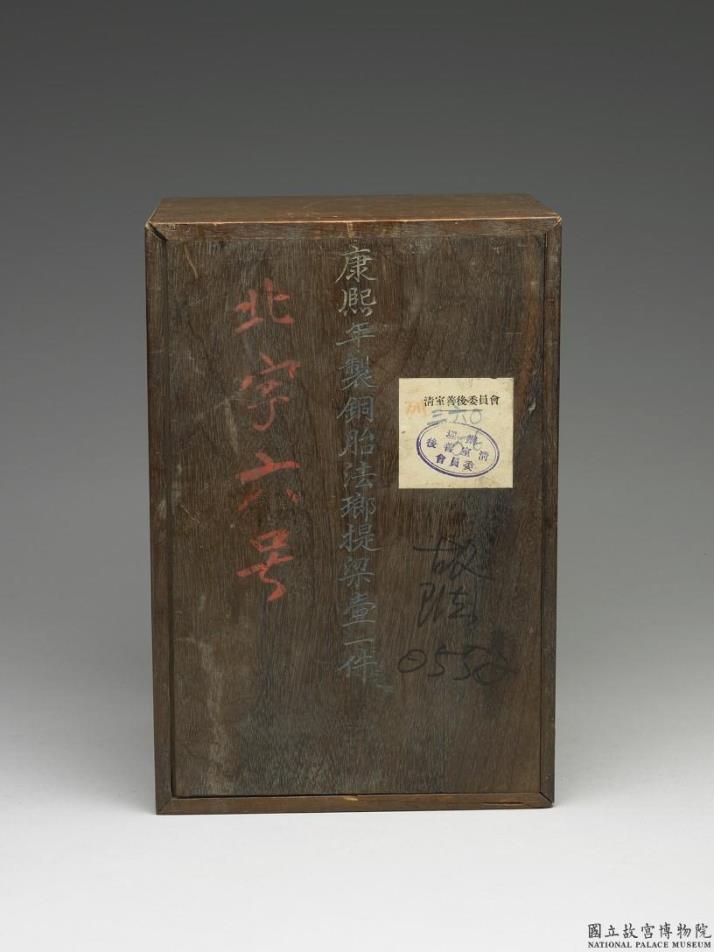 康熙年製銅胎法瑯提梁壺一件
北字六号
清室善後委員會
三六〇
辦理
清室善後
委員會
故
0550
國立故宮博物院
NATIONAL PALACE MUSEUM